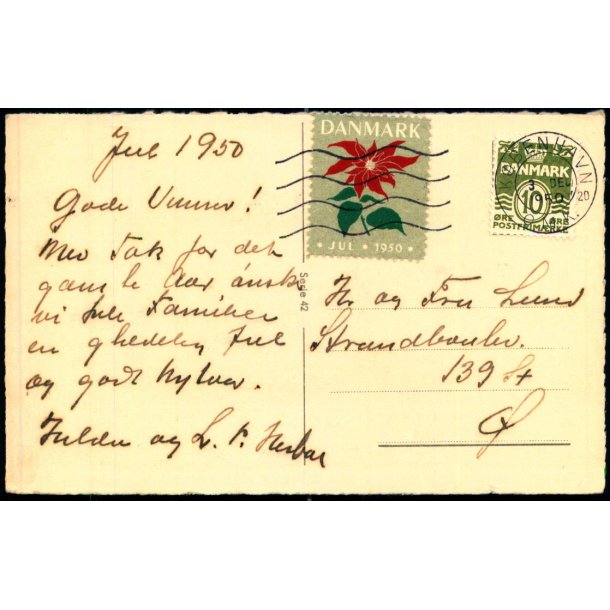 Jul 1950
Gode Venner!
Med Tak for det
gamle Aar ønsk
vi hele Familien
en glædelig Jul
og godt Nytaar.
og
DANMARK
JUL 1950
KØBENHAVN
DANMARK
10
ØRE ØRE
POSTFRIMÆRKE
Serie 42
Hr og Fru Lund
Strandboulev.
139 St
Ø